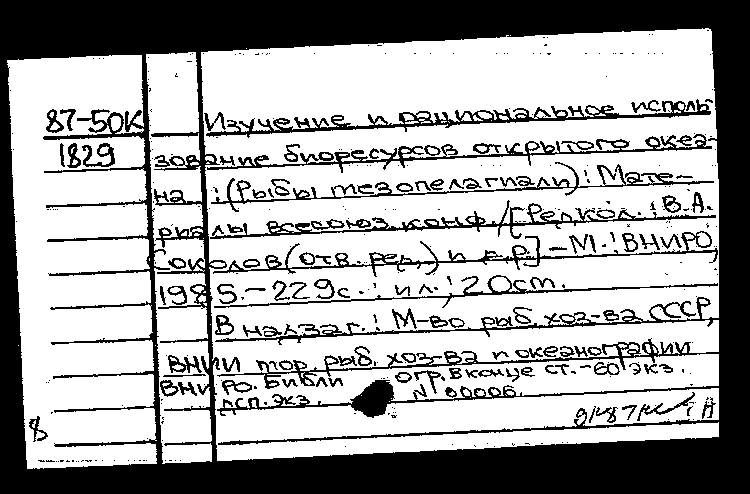 87-50К Изучение и рациональное исполь-
1829 зование биоресурсов открытого океа-
на : (Рыбы мезопелагиали) : Мате-
риалы всесоюз. конф. / [Редкол. : В.А.
Соколов (отв. ред.) и др.] - М. : ВНИРО,
1985. - 229 с. : ил. ; 20 см.
В надзаг. : М-во рыб. хоз-ва СССР,
ВНИИ мор. рыб. хоз-ва и океанографии
ВНИРО. Библи огр. в конце ст. - 60 экз.
дсп. экз. N 00006.
8